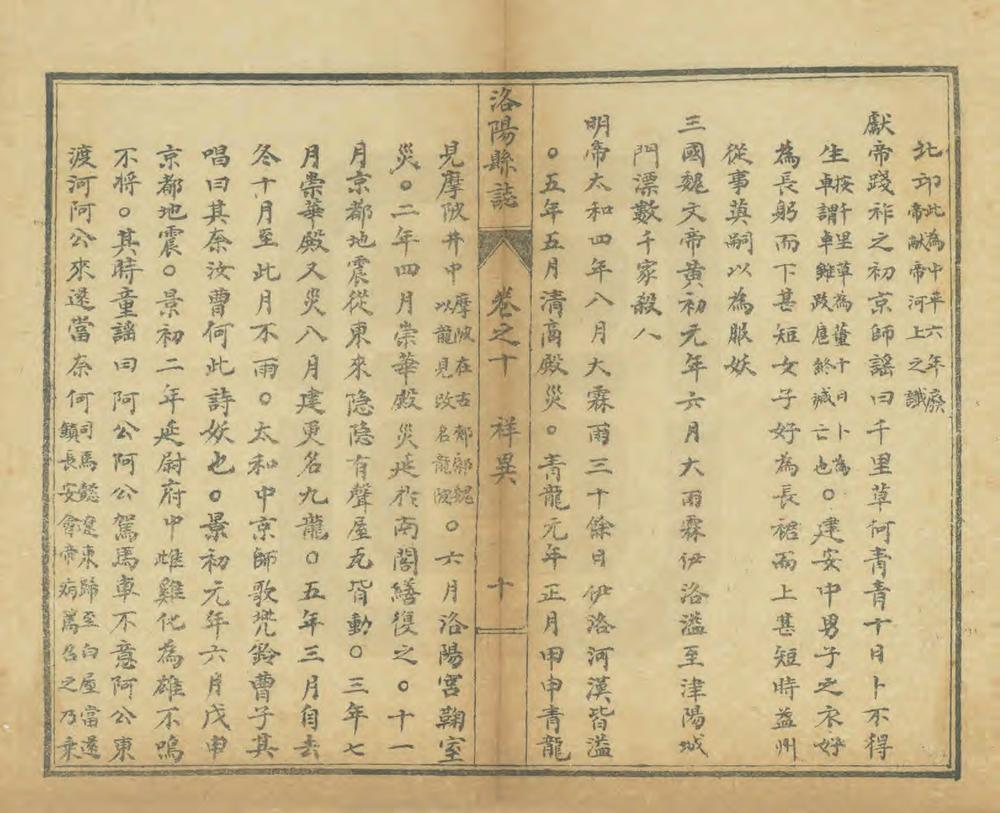 北邙此為中平六年廢帝獻帝河上之讖
獻帝踐祚之初京師謠曰千里草何青青十日卜不得
生按千里草為董十日卜為卓謂卓雖跋扈終滅亡也○建安中男子之衣好
為長躬而下甚短女子好為長裙而上甚短時益州
從事莫嗣以為服妖
三國魏文帝黃初元年六月大雨霖伊洛溢至津陽城
門漂數千家殺人
明帝太和四年八月大霖雨三十餘日伊洛河漢皆溢
○五年五月清商殿災○青龍元年正月甲申青龍
洛陽縣誌 卷之十 祥異 十
見摩陂井中摩陂在古郟鄏魏以龍見改名龍陂○六月洛陽宮鞠室
災○二年四月崇華殿災延於南閣繕復之○十一
月京都地震從東來隐隐有聲屋瓦皆動○三年七
月崇華殿又災八月建更名九龍○五年三月自去
冬十月至此月不雨○太和中京師歌兠鈴曹子其
唱曰其奈汝曹何此詩妖也○景初元年六月戊申
京都地震○景初二年延尉府中雌雞化為雄不鳴
不将○其時童謠曰阿公阿公駕馬車不意阿公東
渡河阿公來還當奈何司馬懿遼東歸至白屋當還鎮長安會帝病篤召之乃乘